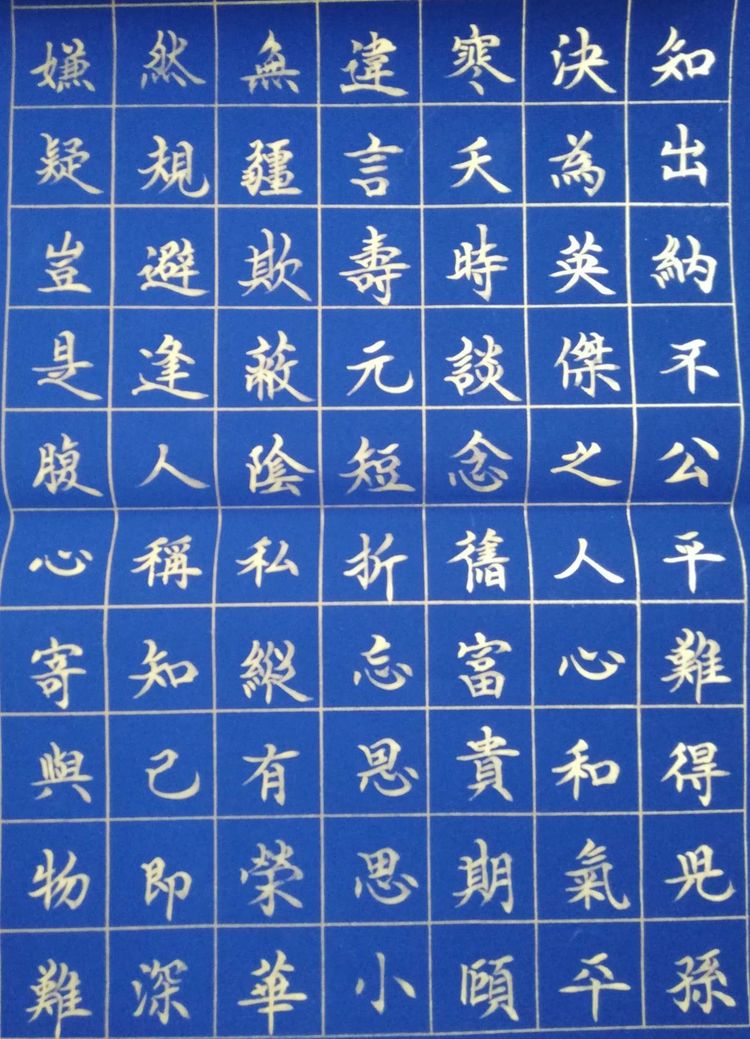 知出納不公平難得兒孫
決為英傑之人心和氣平
寒夭時談念舊富貴期頤
違言壽元短折忘恩思小
無疆欺蔽陰私縱有榮華
然規避逢人稱知己即深
嫌疑豈是腹心寄與物難